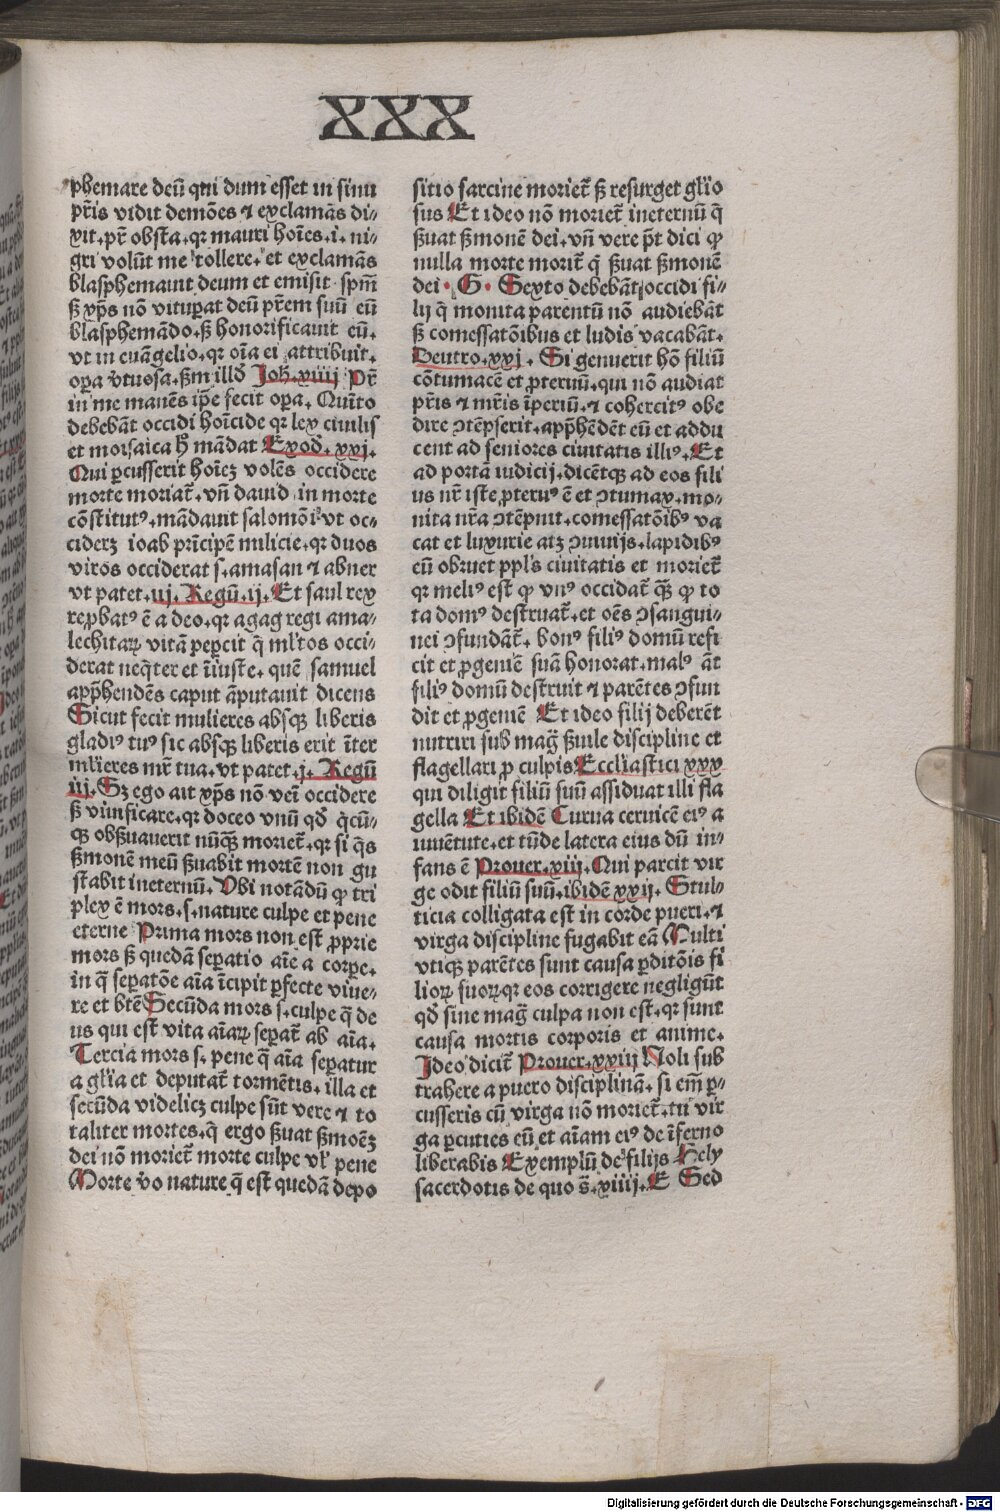 XXX
phemare deū qui dum esset in sinu
pr̄is vidit demōes ⁊ exclamās di⸗
xit. pr̄ obsta. qꝛ mauri hoīes. i. ni⸗
gri volūt me tollere. et exclamās
blasphemauit deum et emisit spm̄
sꝫ xp̄s nō vituꝑat deū pr̄em suū eū
blasphemādo. sꝫ honorificauit eū.
vt in euāgelio. qꝛ oīa ei attribuit.
oꝑa v̓tuosa. ẜm illd̓ Joh. xiiij Pr̄
in me manēs ip̄e fecit oꝑa. Quīto
debebāt occidi hoīcide qꝛ lex ciuilis
et moisaica h̓ mādat Exod̓. xxj.
Qui ꝑcusserit hoīeꝫ volēs occidere
morte moriat̄. vn̄ dauid in morte
cōstitutꝰ. mādauit salomōi vt oc⸗
ciderꝫ ioab prīcipē milicie. qꝛ duos
viros occiderat s. amasan ⁊ abner
vt patet. iij. Regū. ij. Et saul rex
reꝓbatꝰ ē a deo. qꝛ agag regi ama⸗
lechitaꝝ vitā peꝑcit q̄ ml̓tos occi⸗
derat neq̄ter et īiuste. quē samuel
app̄hendēs caput āputauit dicens
Sicut fecit mulieres absqꝫ liberis
gladiꝰ tuꝰ sic absqꝫ liberis erit īter
ml̓ieres mr̄ tua. vt patet. j. Regū
iij. Sꝫ ego ait xp̄s nō veī occidere
sꝫ viuificare. qꝛ doceo vnū qd̓ q̓cū⸗
qꝫ obẜuauerit nūqꝫ̄ moriet̄. qꝛ si q̓s
ẜmonē meū ẜuabit mortē non gu
stabit ineternū. Vbi notādū ꝙ tri
plex ē mors. s. nature culpe et pene
eterne Prima mors non est ꝓprie
mors sꝫ quedā seꝑatio aīe a corꝑe.
in q̄ seꝑatōe aīa īcipit ꝑfecte viue⸗
re et btē Secūda mors s. culpe q̄ de
us qui est vita aīaꝝ seꝑat̄ ab aīa.
Tercia mors s. pene q̄ aīa seꝑatur
a gl̓ia et deputat̄ tormētis. illa et
secūda videlicꝫ culpe sūt vere ⁊ to
taliter mortes. q̄ ergo ẜuat ẜmoēꝫ
dei nō moriet̄ morte culpe vl̓ pene
Morte v̓o nature q̄ est quedā depo
sitio sarcine moriet̄ sꝫ resurget gl̓io
sus Et ideo nō moriet̄ ineternū q̄
ẜuat ẜmonē dei. vn̄ vere p̄t dici ꝙ
nulla morte morit̄ q̄ ẜuat ẜmonē
dei. G. Sexto debebāt occidi fi⸗
lij q̄ monita parentū nō audiebāt
sꝫ comessatōibus et ludis vacabāt.
Deutro. xxj. Si genuerit hō filiū
cōtumacē et ꝓteruū. qui nō audiat
pr̄is ⁊ mr̄is īperiū. ⁊ cohercitꝰ obe
dire ↄtēpserit. app̄hēdēt eū et addu
cent ad seniores ciuitatis illiꝰ. Et
ad portā iudicij. dicētqꝫ ad eos fili
us nr̄ iste ꝓteruꝰ ē et ↄtumax. mo⸗
nita nr̄a ↄtēpnit. comessatōibꝰ va
cat et luxurie atqꝫ ↄuiuijs. lapidibꝰ
eū obruet ppl̓s ciuitatis et moriet̄
qꝛ meliꝰ est ꝙ vnꝰ occidat̄ qꝫ̄ ꝙ to
ta domꝰ destruat̄. et oēs ↄsangui⸗
nei ↄfundāt̄. bonꝰ filiꝰ domū refi
cit et ꝓgeniē suā honorat. malꝰ āt
filiꝰ domū destruit ⁊ parētes ↄfun
dit et ꝓgeniē Et ideo filij deberēt
nutriri sub mag̓ ẜuile discipline et
flagellari ꝓ culpis Eccl̓iastici xxx
qui diligit filiū suū assiduat illi fla
gella Et ibidē Curua ceruicē eiꝰ a
iuuētute. et tūde latera eius dū in⸗
fans ē Prouer. xiij. Qui parcit vir
ge odit filiū suū. ibidē xxij. Stul⸗
ticia colligata est in corde pueri. ⁊
virga discipline fugabit eā Multi
vtiqꝫ parētes sunt causa ꝑditōis fi
lioꝝ suoꝝ qꝛ eos corrigere negligūt
qd̓ sine mag̓ culpa non est. qꝛ sunt
causa mortis corporis et anime.
Ideo dicit̄ Prouer. xxiij Noli sub
trahere a puero disciplinā. si em̄ ꝑ⸗
cusseris eū virga nō moriet̄. tu vir
ga ꝑcuties eū et aīam eiꝰ de īferno
liberabis Exemplū de filijs Hely
sacerdotis de quo s̓. xiiij. E Sed
Digitalisierung gefördert durch die Deutsche Forschungsgemeinschaft - DFG